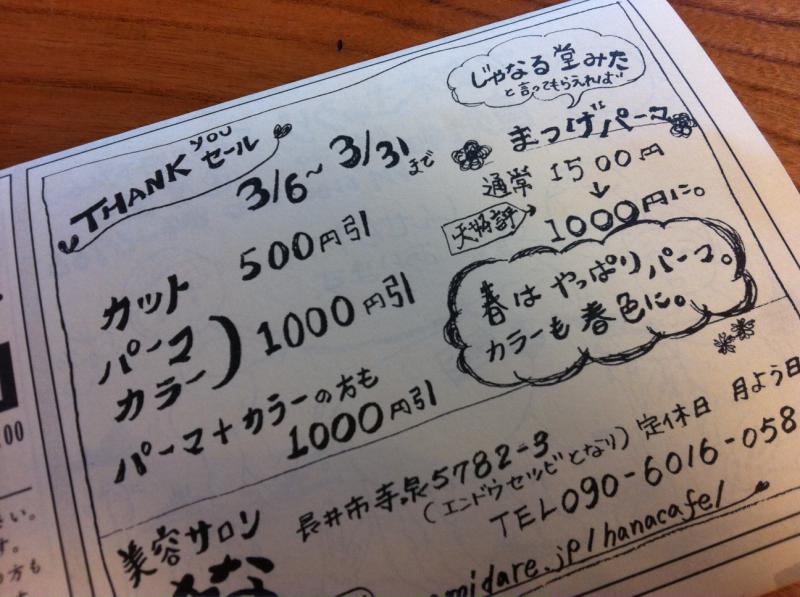 THANK YOU セール
3/6~3/31まで
カット 500円引
パーマ
カラー) 1000円引
パーマ+カラーの方も
1000円引
じゃなる堂みた
と言ってもらえれば
まつげパーマ
通常 1500円
↓
大好評 1000円に。
春は やっぱり パーマ。
カラーも 春色に。
美容サロン
長井市寺泉5782-3
(エンドウセツビとなり) 定休日 月よう日
TEL 090-6016-058
midare.jp/hanacafe/
:00
い。
す。
の方も